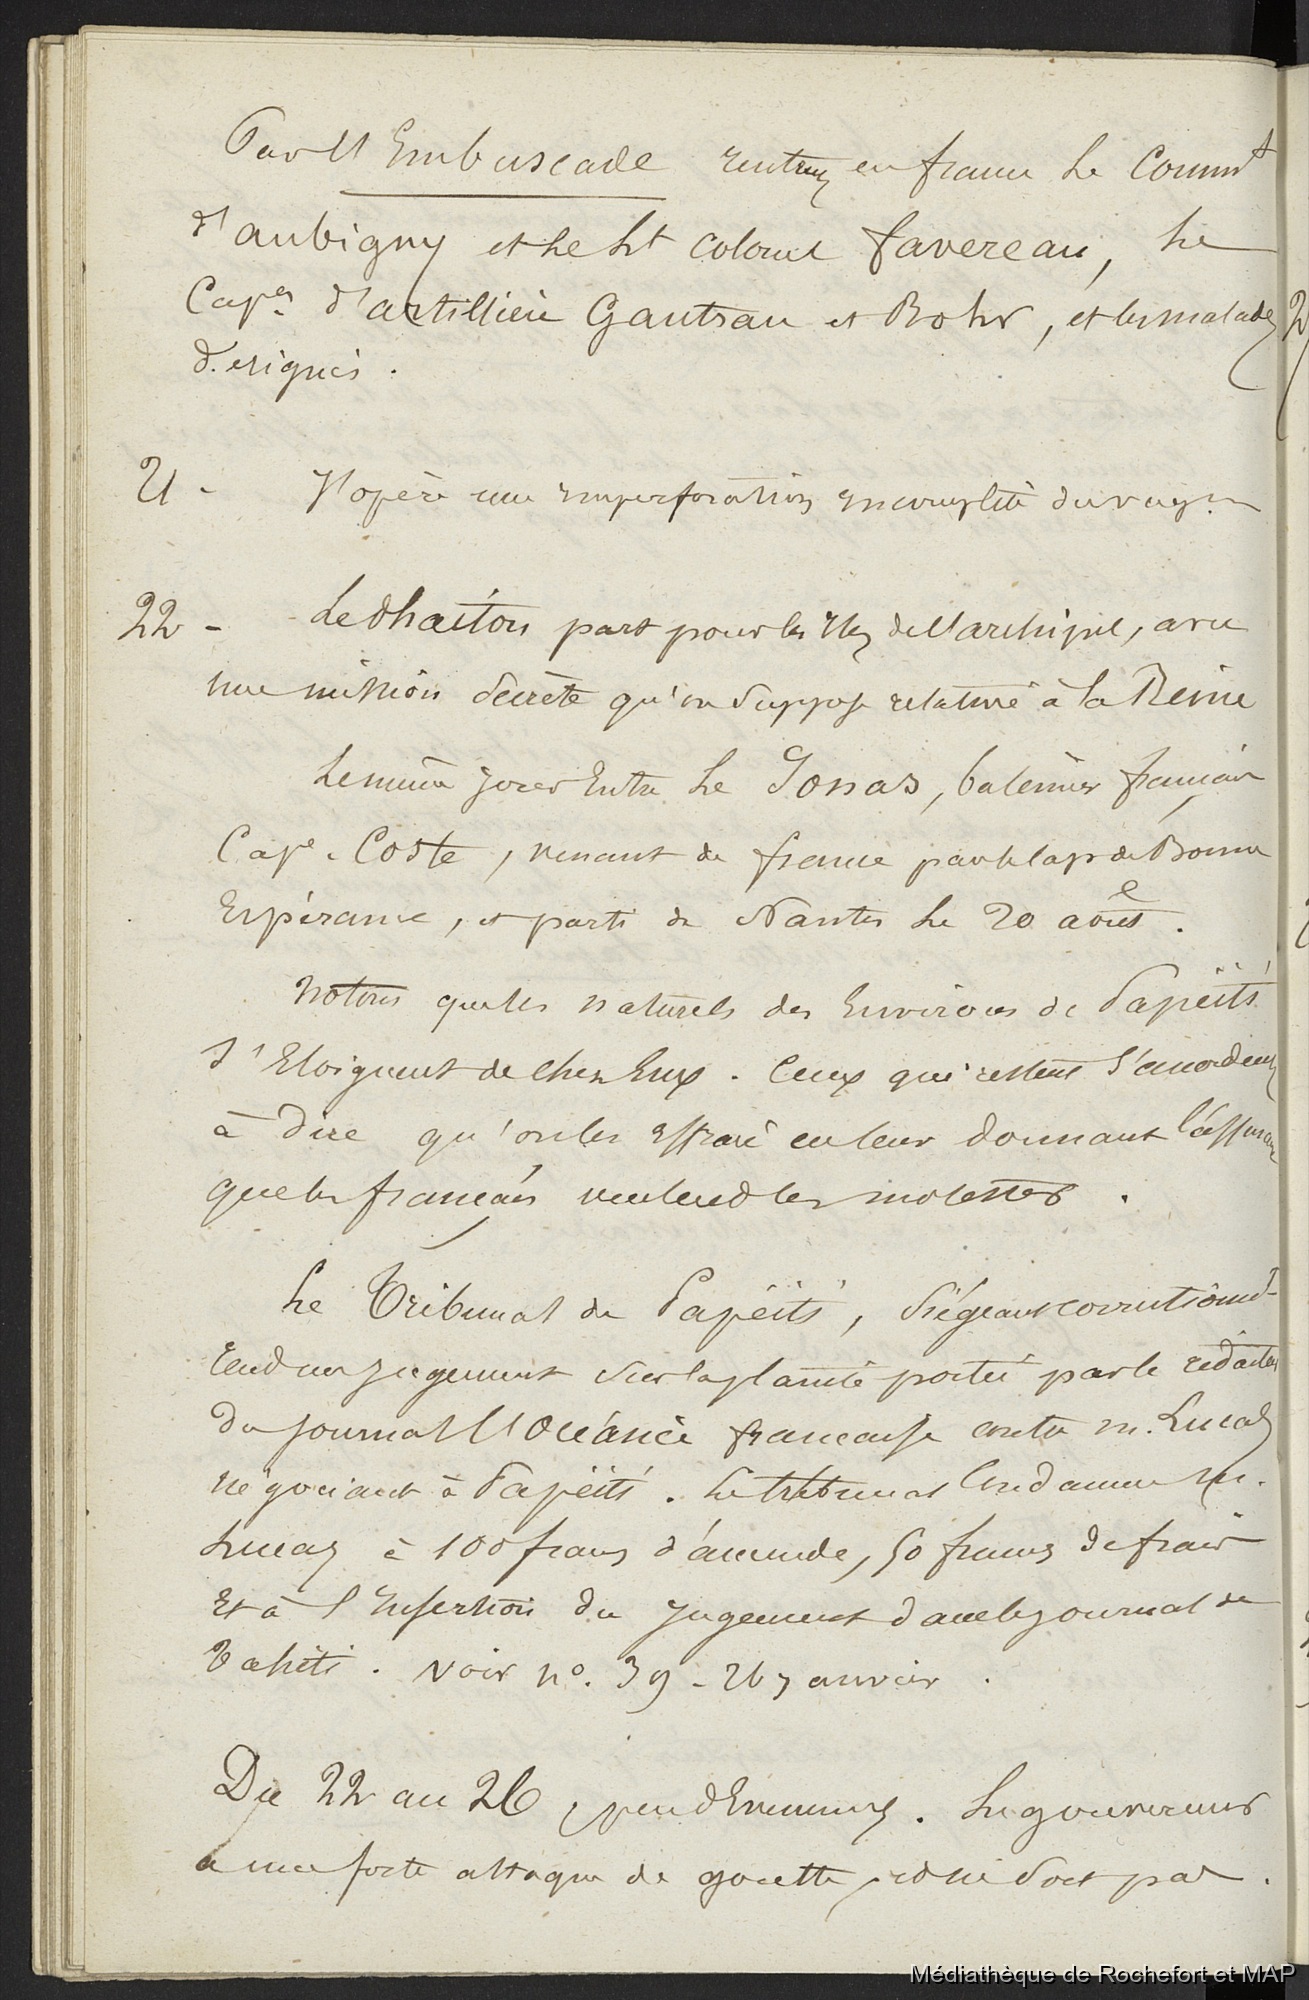 Par l'Embuscade rentrent en france le Commt
d'aubigny et le Lt colonel favereau, les
Capes d'artillerie Gautrau et Rohr, et les malades
désignés.
21 - J'opère une imperforation incomplète du vagin
22 - Le Phaéton part pour les Iles de l'archipel, avec
une mission secrète qu'on suppose relative à la Reine
Le même jour Entre le Jonas, baleinier français
Cape. Coste, venant de france par le Cap de Bonne
Espérance, et parti de Nantes le 20 août.
Notons que les naturels des Environs de Papéïté
s'Eloignent de chez Eux. Ceux qui restent s'accordent
à dire qu'on les Effraie en leur donnant l'assurance
que les français veulent les molester.
Le Tribunal de Papéïté, siégeant correctionnt
rend un jugement sur la plainte portée par le rédacteur
du journal l'Océanie française contre m. Lucas
négociant à Papéïté. Le tribunal Condamne M.
Lucas à 100 francs d'amende, 50 francs de frais
Et à l'Insertion du jugement dans le journal de
Tahiti. Voir no. 39 - 26 janvier.
Du 22 au 26, peu d'Evenements. Le gouverneur
a une forte attaque de goutte, et ne sort pas.
Médiathèque de Rochefort et MAP